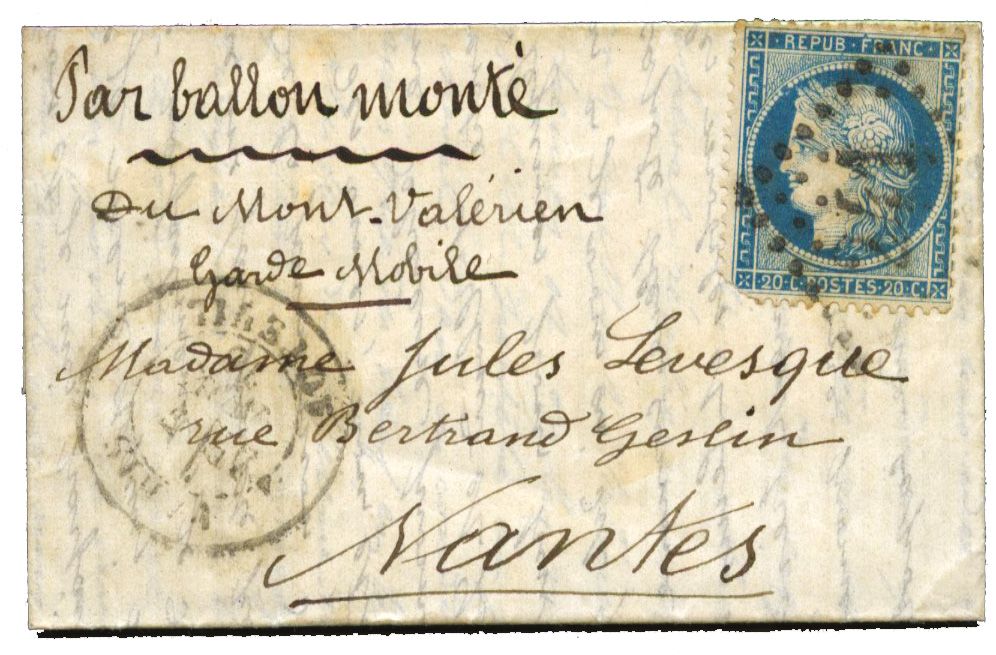 Par ballon monté
REPUB · FRANC ·
Du Mont-Valérien
Garde Mobile
20 · C · POSTES · 20 · C ·
Madame Jules Levesque
rue Bertrand Geslin
Nantes